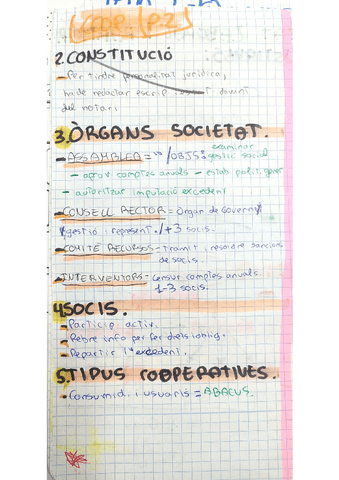 COOP (P.2)
2. CONSTITUCIÓ
- Per tindre personalitat jurídica,
ha de redactar escrip davant
del notari.
3. ÒRGANS SOCIETAT.
- ASSAMBLEA = /OBJS: examinar
gestió social
- aprov comptes anuals - estab polit.
- autoritzar imputació excedent
- CONSELL RECTOR = Òrgan de Govern/
gestió i represent. /+3 socis.
- COMITÉ RECURSOS = tramit i resoldre sancions
de socis.
- INTERVENTORS = Censur comptes anuals
1-3 socis.
4. SOCIS.
- Particip activ.
- Rebre info per fer drets i oblig.
- Repartir l'excedent.
5. TIPUS COOPERATIVES.
- Consumid. i usuaris = ABACUS.